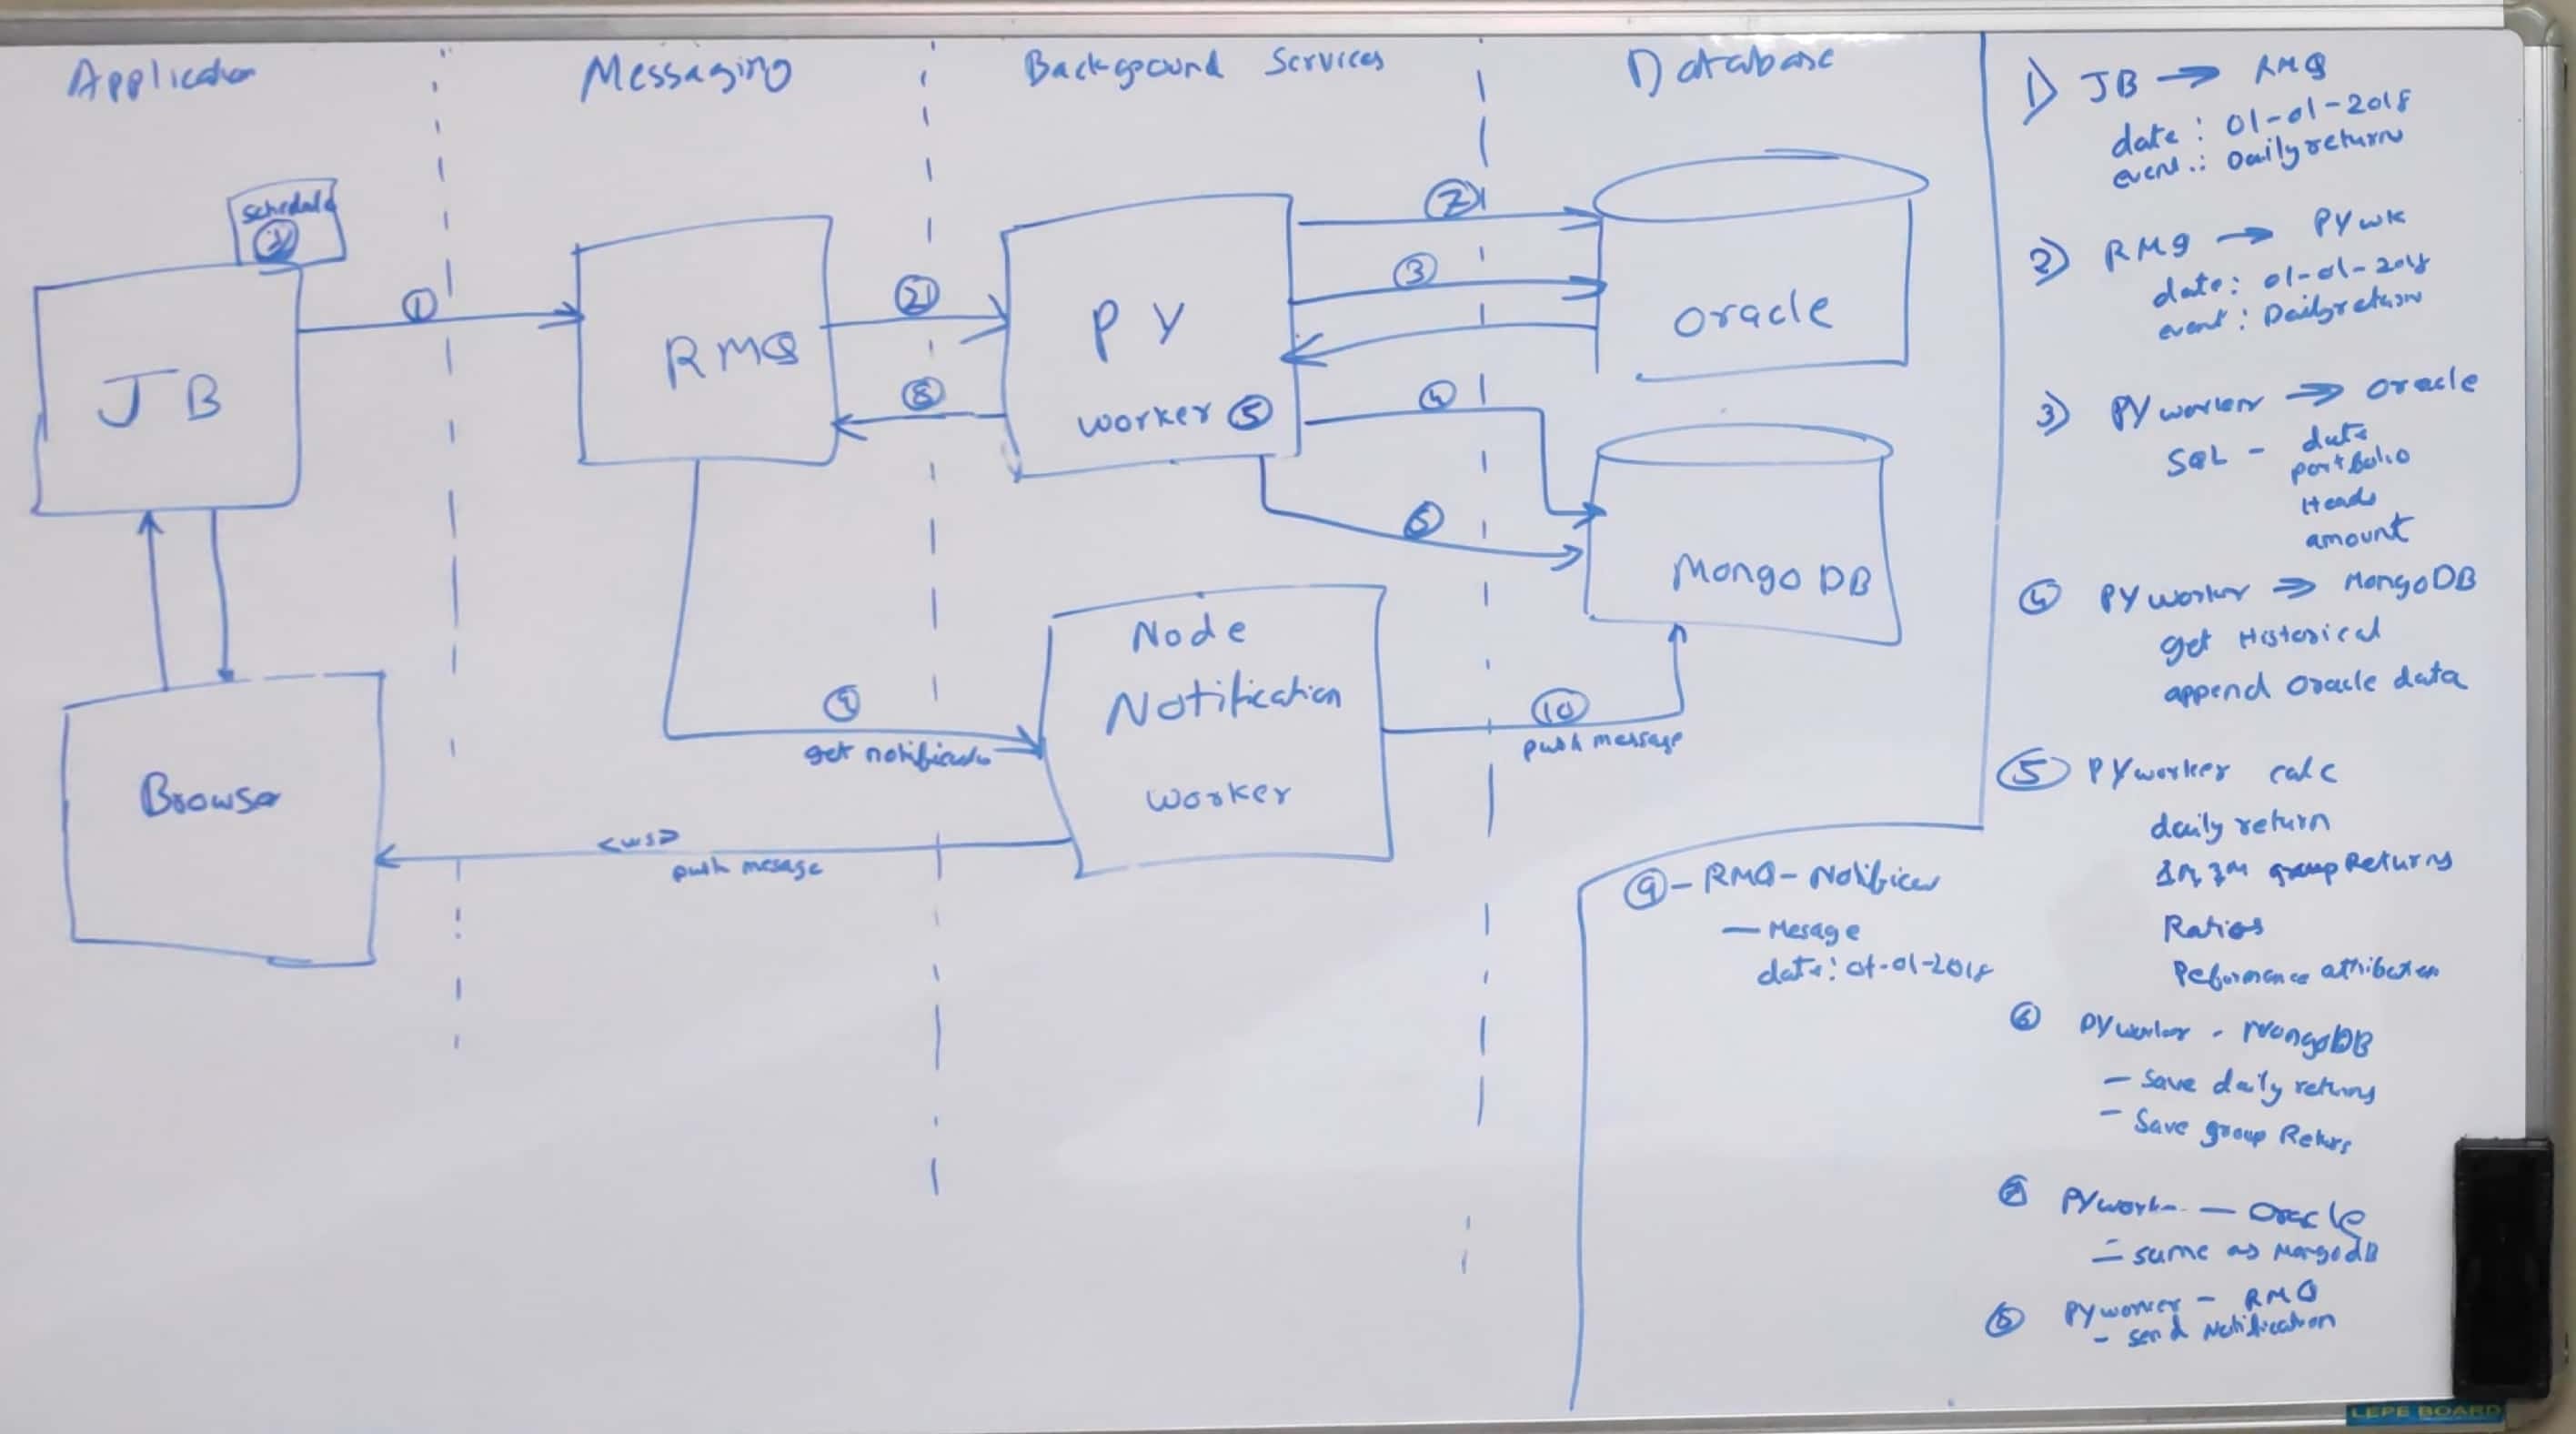 Application
Messaging
Background Services
Database
Schedule
JB
1
RMQ
2
8
PY
worker 5
7
3
4
6
Oracle
Mongo DB
Browser
Node
Notification
worker
9
get notification
10
push message
<ws>
push mesage
1) JB → RMQ
date : 01-01-2018
event : Dailyreturn
2) RMQ → PY wk
date: 01-01-2018
event : Dailyreturn
3) PY worker → oracle
SQL - date
portfolio
Heads
amount
4 PY worker → MongoDB
get Historical
append Oracle data
5 PY worker calc
daily return
1M, 3M group Returns
Ratios
Peformance attribution
6 PY worker - MongoDB
- Save daily returns
- Save group Returs
7 PY work - Oracle
= same as MongodB
8 PY worker - RMQ
- send Notification
9 - RMQ - Notifier
- Mesage
date: 01-01-2018
LEPE BOARD